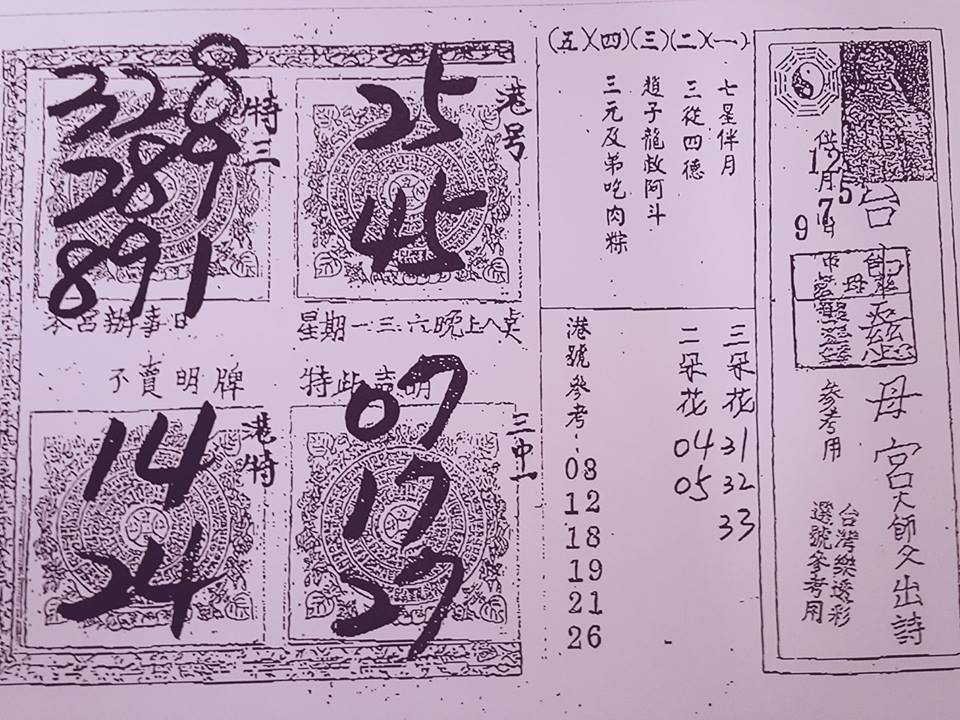 台
母宮大師父出詩
供
12月7日
5
9
參考用
台灣樂透彩
選號參考用
(五)(四)(三)(二)(一)
七星伴月
三從四德
趙子龍救阿斗
三元及弟吃肉粽
三朵花 31 32 33
二朵花 04 05
港號參考 08 12 18 19 21 26
港号
25
45
特三
328
289
891
星期一三六晚上八點
本宮辦事日
特此声明
不賣明牌
三中一
07
17
27
港特
14
24